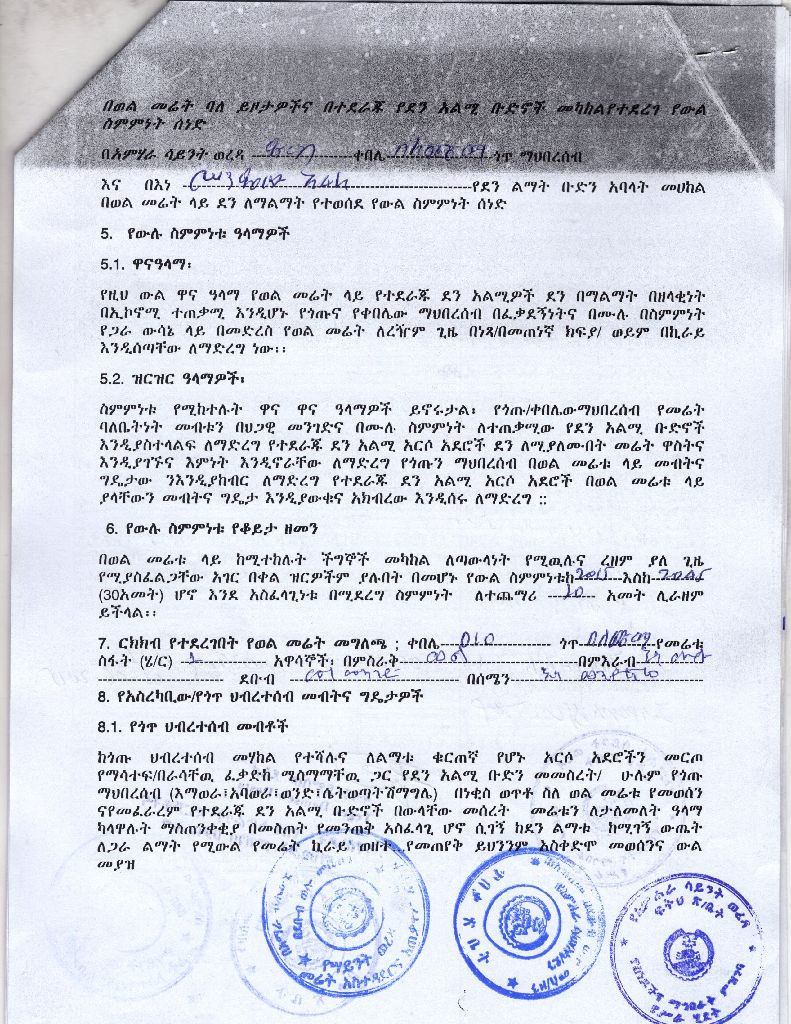 በወል መሬት ባለ ይዞታዎችና በተደራጁ የደን አልሚ ቡድኖች መካከልየተደረገ የውል
ስምምነት ሰነድ
በአምሃራ ሳይንት ወረዳ ቀበሌ ጎጥ ማህበረሰብ
እና በእነ የደን ልማት ቡድን አባላት መሀከል
በወል መሬት ላይ ደን ለማልማት የተወሰደ የውል ስምምነት ሰነድ
5. የውሉ ስምምነቱ ዓላማዎች
5.1. ዋናዓላማ፡
የዚህ ውል ዋና ዓላማ የወል መሬት ላይ የተደራጁ ደን አልሚዎች ደን በማልማት በዘላቂነት
በኢኮኖሚ ተጠቃሚ እንዲሆኑ የጎጡና የቀበሌው ማህበረሰብ በፈቃደኝነትና በሙሉ በስምምነት
የጋራ ውሳኔ ላይ በመድረስ የወል መሬት ለረዥም ጊዜ በነጻ/በመጠነኛ ክፍያ/ ወይም በኪራይ
እንዲሰጣቸው ለማድረግ ነው፡፡
5.2. ዝርዝር ዓላማዎች፡
ስምምነቱ የሚከተሉት ዋና ዋና ዓላማዎች ይኖሩታል፡ የጎጡ/ቀበሌውማህበረሰብ የመሬት
ባለቤትነት መብቱን በህጋዊ መንገድና በሙሉ ስምምነት ለተጠቃሚው የደን አልሚ ቡድኖች
እንዲያስተላልፍ ለማድረግ የተደራጁ ደን አልሚ አርሶ አደሮች ደን ለሚያለሙበት መሬት ዋስትና
እንዲያገኙና እምነት እንዲኖራቸው ለማድረግ የጎጡን ማህበረሰብ በወል መሬቱ ላይ መብትና
ግዴታው ንእንዲያከብር ለማድረግ የተደራጁ ደን አልሚ አርሶ አደሮች በወል መሬቱ ላይ
ያላቸውን መብትና ግዴታ እንዲያውቁና አክብረው እንዲሰሩ ለማድረግ ::
6. የውሉ ስምምነቱ የቆይታ ዘመን
በወል መሬቱ ላይ ከሚተከሉት ችግኞች መካከል ለጣውላነት የሚዉሉና ረዘም ያለ ጊዜ
የሚያስፈልጋቸው አገር በቀል ዝርዎችም ያሉበት በመሆኑ የውል ስምምነቱከ 2015 እስከ 2045
(30አመት) ሆኖ እንደ አስፈላጊነቱ በሚደረግ ስምምነት ለተጨማሪ አመት ሊራዘም
ይችላል፡፡
7. ርክክብ የተደረገበት የወል መሬት መግለጫ ; ቀበሌ 010 ጎጥ የመሬቱ
ስፋት (ሄ/ር) አዋሳኞች፡ በምስራቅ በምእራብ
ደቡብ በሰሜን
8. የአስረካቢው/የጎጥ ህብረተሰብ መብትና ግዴታዎች
8.1. የጎጥ ህብረተሰብ መብቶች
ከጎጡ ህብረተሰብ መሃከል የተሻሉና ለልማቱ ቁርጠኛ የሆኑ አርሶ አደሮችን መርጦ
የማሳተፍ/በራሳቸዉ ፈቃድከ ሚስማማቸዉ ጋር የደን አልሚ ቡድን መመስረት/ ሁሉም የጎጡ
ማህበረሰብ (እማወራ፣አባወራ፣ወንድ፣ሴትወጣትሽማግሌ) በነቂስ ወጥቶ ስለ ወል መሬቱ የመወሰን
ናየመፈራረም የተደራጁ ደን አልሚ ቡድኖች በውላቸው መሰረት መሬቱን ለታለመለት ዓላማ
ካላዋሉት ማስጠንቀቂያ በመስጠት የመንጠቅ አስፈላጊ ሆኖ ሲገኝ ከደን ልማቱ ከሚገኝ ውጤት
ለጋራ ልማት የሚውል የመሬት ኪራይ ወዘተ...የመጠየቅ ይህንንም አስቀድሞ መወሰንና ውል
መያዝ